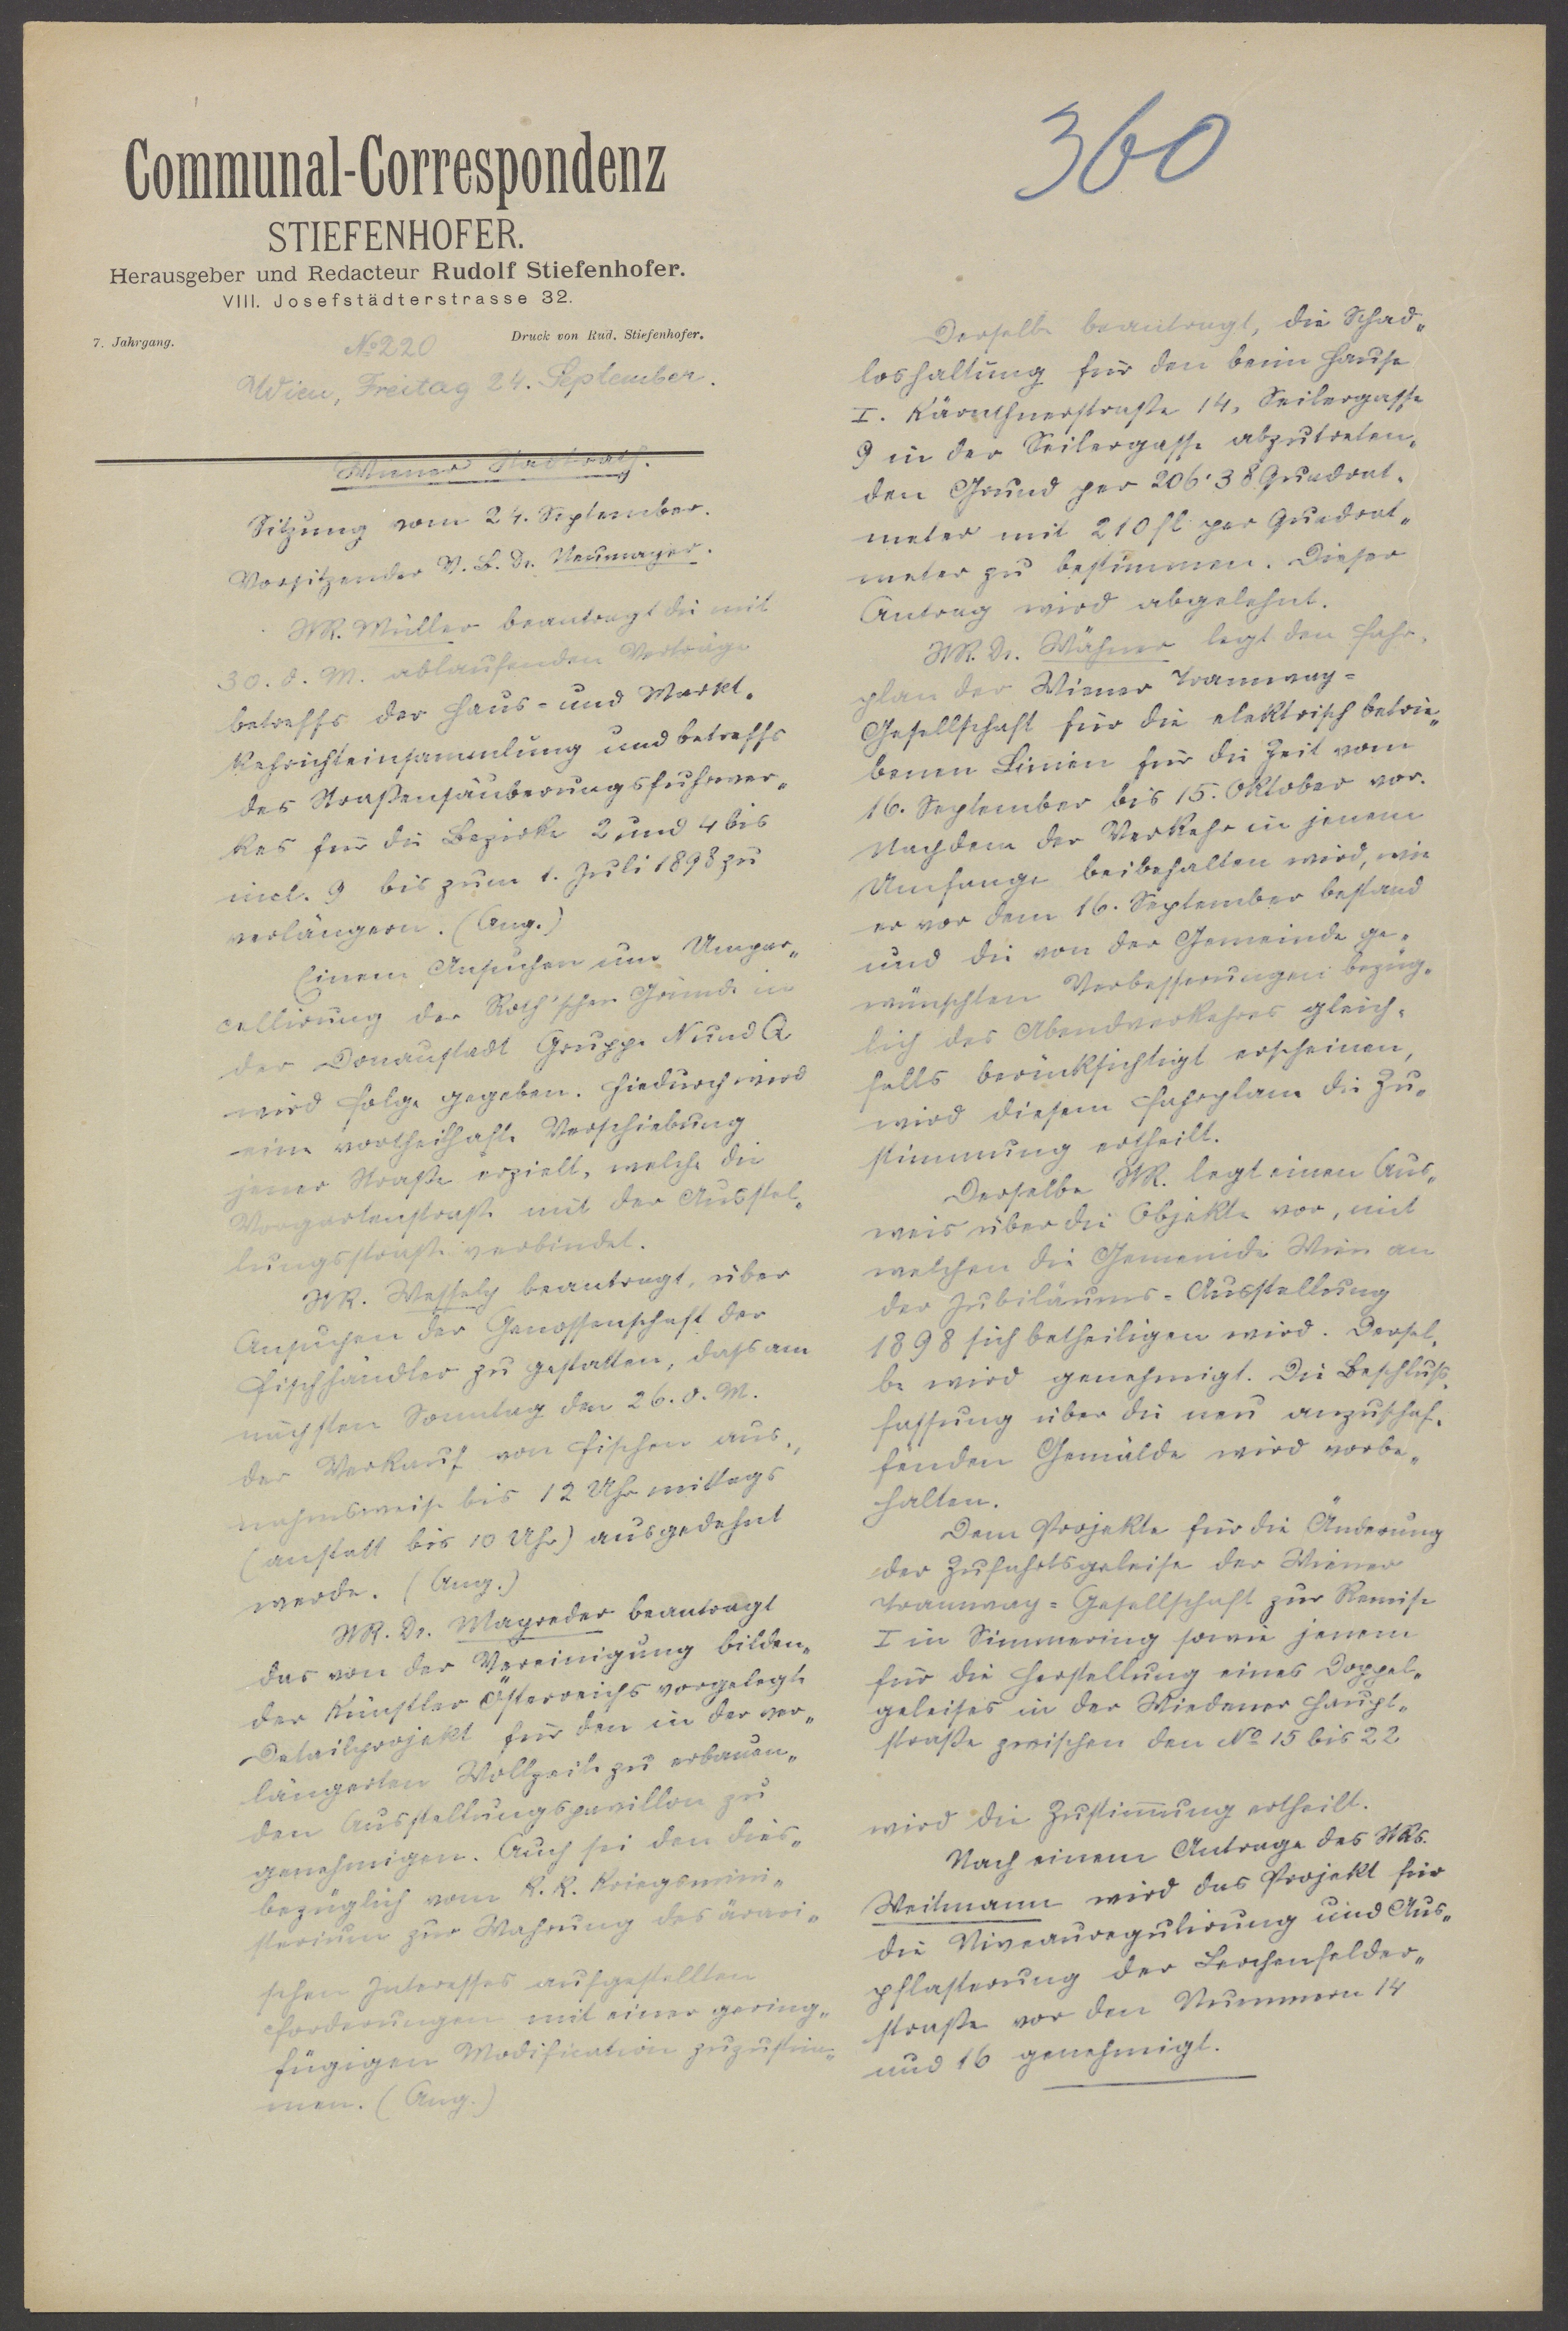 360
Communal-Correspondenz
STIEFENHOFER.
Herausgeber und Redacteur Rudolf Stiefenhofer.
VIII. Josefstädterstrasse 32.
7. Jahrgang.
Druck von Rud. Stiefenhofer.
No 220
Wien, Freitag 24. September.
Wiener Stadtrath.
Sitzung vom 24. September.
Vorsitzender V. B. Dr. Neumayer.
StR. Müller beantragt die mit
30. d. M. ablaufenden Verträge
betreffs der Haus- und Markt„
Kehrichteinsammlung und betreffs
des Straßensäuberungsfuhrwer„
kes für die Bezirke 2 und 4 bis
incl. 9 bis zum 1. Juli 1898 zu
verlängern. (Ang.)
Einem Ansuchen um Umpar„
cellirung der Roth'schen Gründe in
der Donaustadt Gruppe N und Q
wird Folge gegeben. Hiedurch wird
eine vortheilhafte Verschiebung
jener Straße erzielt, welche die
Vorgartenstraße mit der Ausstel„
lungsstraße verbindet.
StR. Wessely beantragt, über
Ansuchen der Genossenschaft der
Fischhändler zu gestatten, dass am
nächsten Sonntag den 26. d. M.
der Verkauf von Fischen aus„
nahmsweise bis 12 Uhr mittags
(anstatt bis 10 Uhr) ausgedehnt
werde. (Ang.)
StR. Dr. Mayreder beantragt
das von der Vereinigung bilden„
der Künstler Österreichs vorgelegte
Detailprojekt für den in der ver„
längerten Wollzeile zu erbauen„
den Ausstellungspavillon zu
genehmigen. Auch sei den dies„
bezüglich vom k. k. Kriegsmini„
sterium zur Wahrung des ärari„
schen Interesses aufgestellten
Forderungen mit einer gering„
fügigen Modification zuzustim„
men. (Ang.)
Derselbe beantragt, die Schad„
loshaltung für den beim Hause
I. Kärnthnerstraße 14, Seilergasse
9 in der Seilergasse abzutreten„
den Grund per 206·38 Quadrat„
meter mit 210 fl per Quadrat„
meter zu bestimmen. Dieser
Antrag wird abgelehnt.
StR. Dr. Wähner legt den Fahr„
plan der Wiener Tramway-
Gesellschaft für die elektrisch betrie„
benen Linien für die Zeit vom
16. September bis 15. Oktober vor.
Nachdem der Verkehr in jenem
Umfange beibehalten wird, wie
er vor dem 16. September bestand
und die von der Gemeinde ge„
wünschten Verbesserungen bezüg„
lich des Abendverkehres gleich„
falls berücksichtigt erscheinen,
wird diesem Fahrplane die Zu„
stimmung ertheilt.
Derselbe StR. legt einen Aus„
weis über die Objekte vor, mit
welchen die Gemeinde Wien an
der Jubiläums-Ausstellung
1898 sich betheiligen wird. Dersel„
be wird genehmigt. Die Beschluss„
fassung über die neu anzuschaf„
fenden Gemälde wird vorbe„
halten.
Dem Projekte für die Änderung
der Zufahrtsgeleise der Wiener
Tramway-Gesellschaft zur Remise
I in Simmering sowie jenem
für die Herstellung eines Doppel„
geleises in der Wiedener Haupt„
straße zwischen den No 15 bis 22
wird die Zustimmung ertheilt.
Nach einem Antrage des StRs.
Weitmann wird das Projekt für
die Niveauregulirung und Aus„
pflasterung der Lerchenfelder„
straße vor den Nummern 14
und 16 genehmigt.